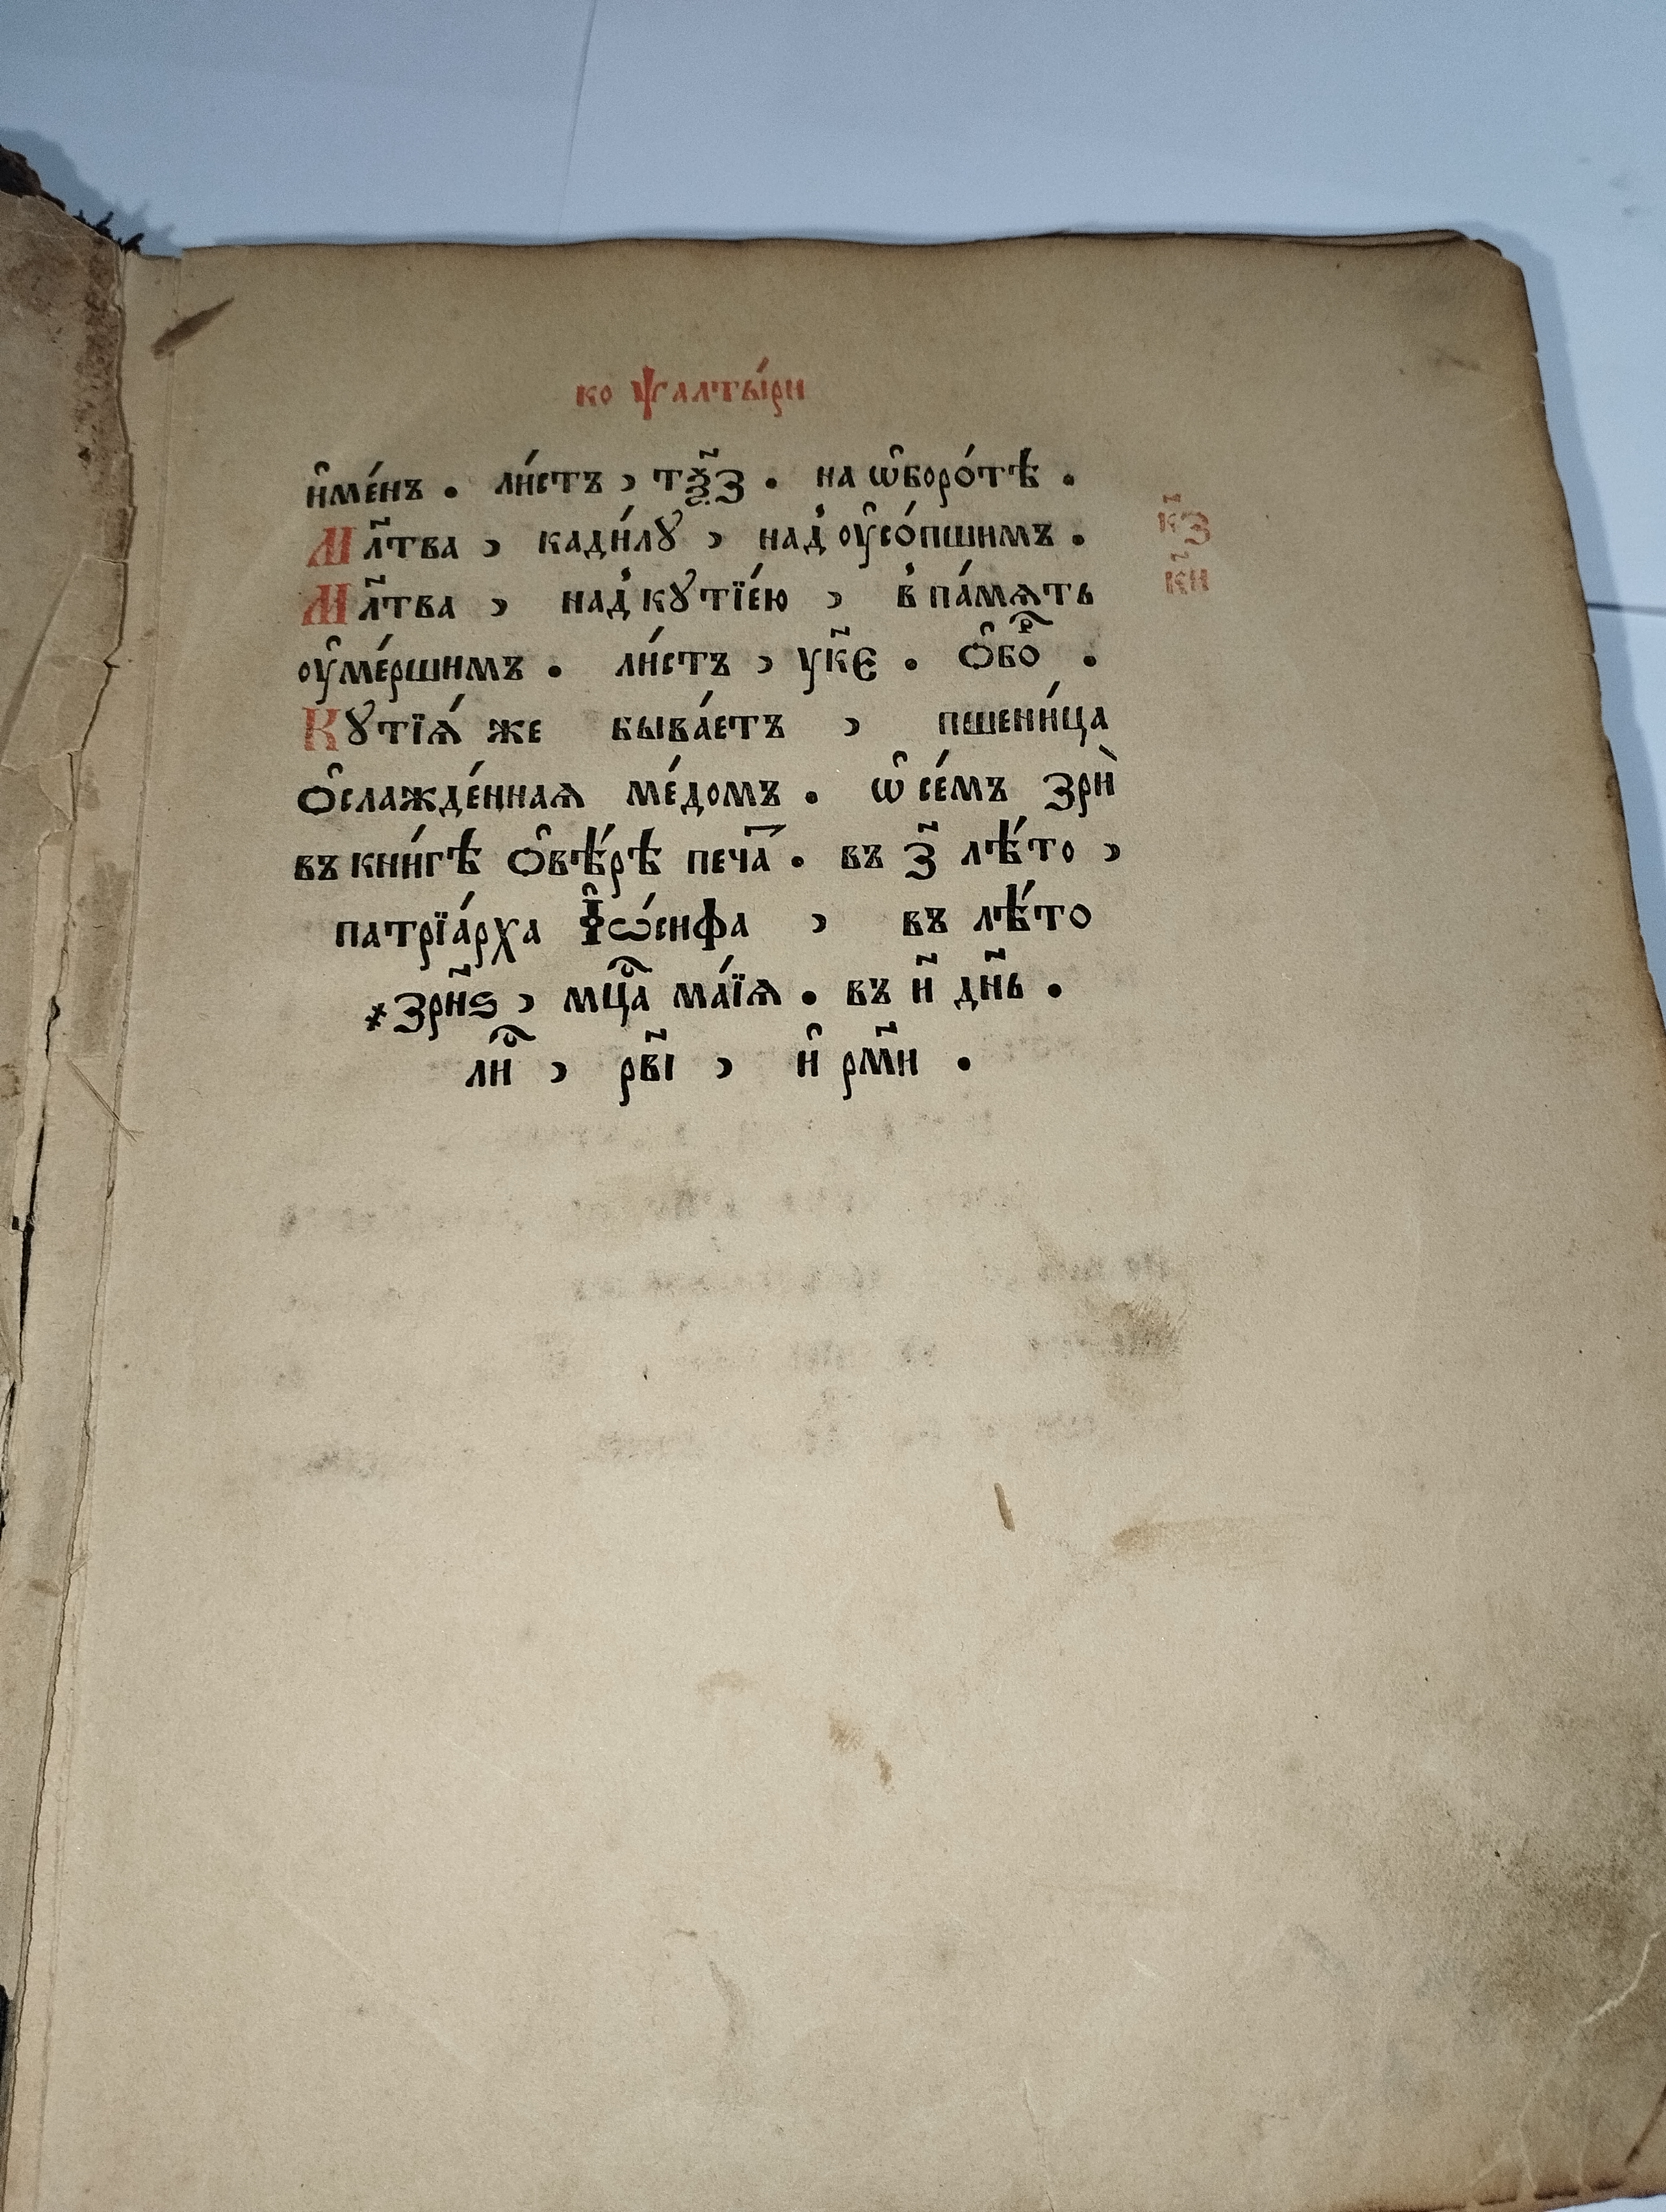 ко ѱалты́ри
и҆ме́нъ . ли́стъ , тѯ҃з . на ѡ҆боро́тѣ .
Мл҃тва , кади́лꙋ , над̾ ᲂу҆со́пшимъ . к҃з
Мл҃тва , над̾ кꙋтїе́ю , в̾ па́мѧть к҃и
ᲂу҆ме́ршимъ . ли́стъ , ук҃є . ѻ҆боⷬ҇ .
Кꙋтїѧ́ же быва́етъ , пшени́ца
ѻ҆слажде́ннаѧ ме́домъ . ѡ҆ се́мъ зрѝ
въ кни́гѣ ѻ҆вѣ́рѣ печаⷯ . въ з҃ лѣ́то ,
патрїа́рха І҆ѡ́сифа , въ лѣ́то
҂зрн҃ѕ , мцⷭ҇а ма́їѧ . въ и҃ дн҃ь .
лиⷭ҇ , рв҃і , и҆ рм҃и .